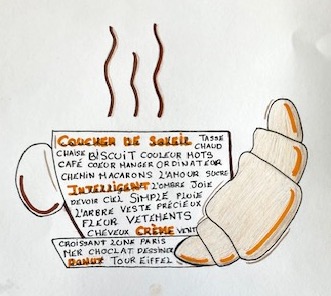 COUCHER DE SOLEIL TASSE
CHAISE BISCUIT COULEUR MOTS CHAUD
CAFÉ COEUR MANGER ORDINATEUR
CHEMIN MACARONS L'AMOUR SUCRE
INTELLIGENT L'OMBRE JOIE
DEVOIR CIEL SIMPLE PLUIE
L'ARBRE VESTE PRÉCIEUX
FLEUR VETEMENTS
CHEVEUX CRÈME VENT
CROISSANT LUNE PARIS
MER CHOCLAT DESSINER
DONUT TOUR EIFFEL